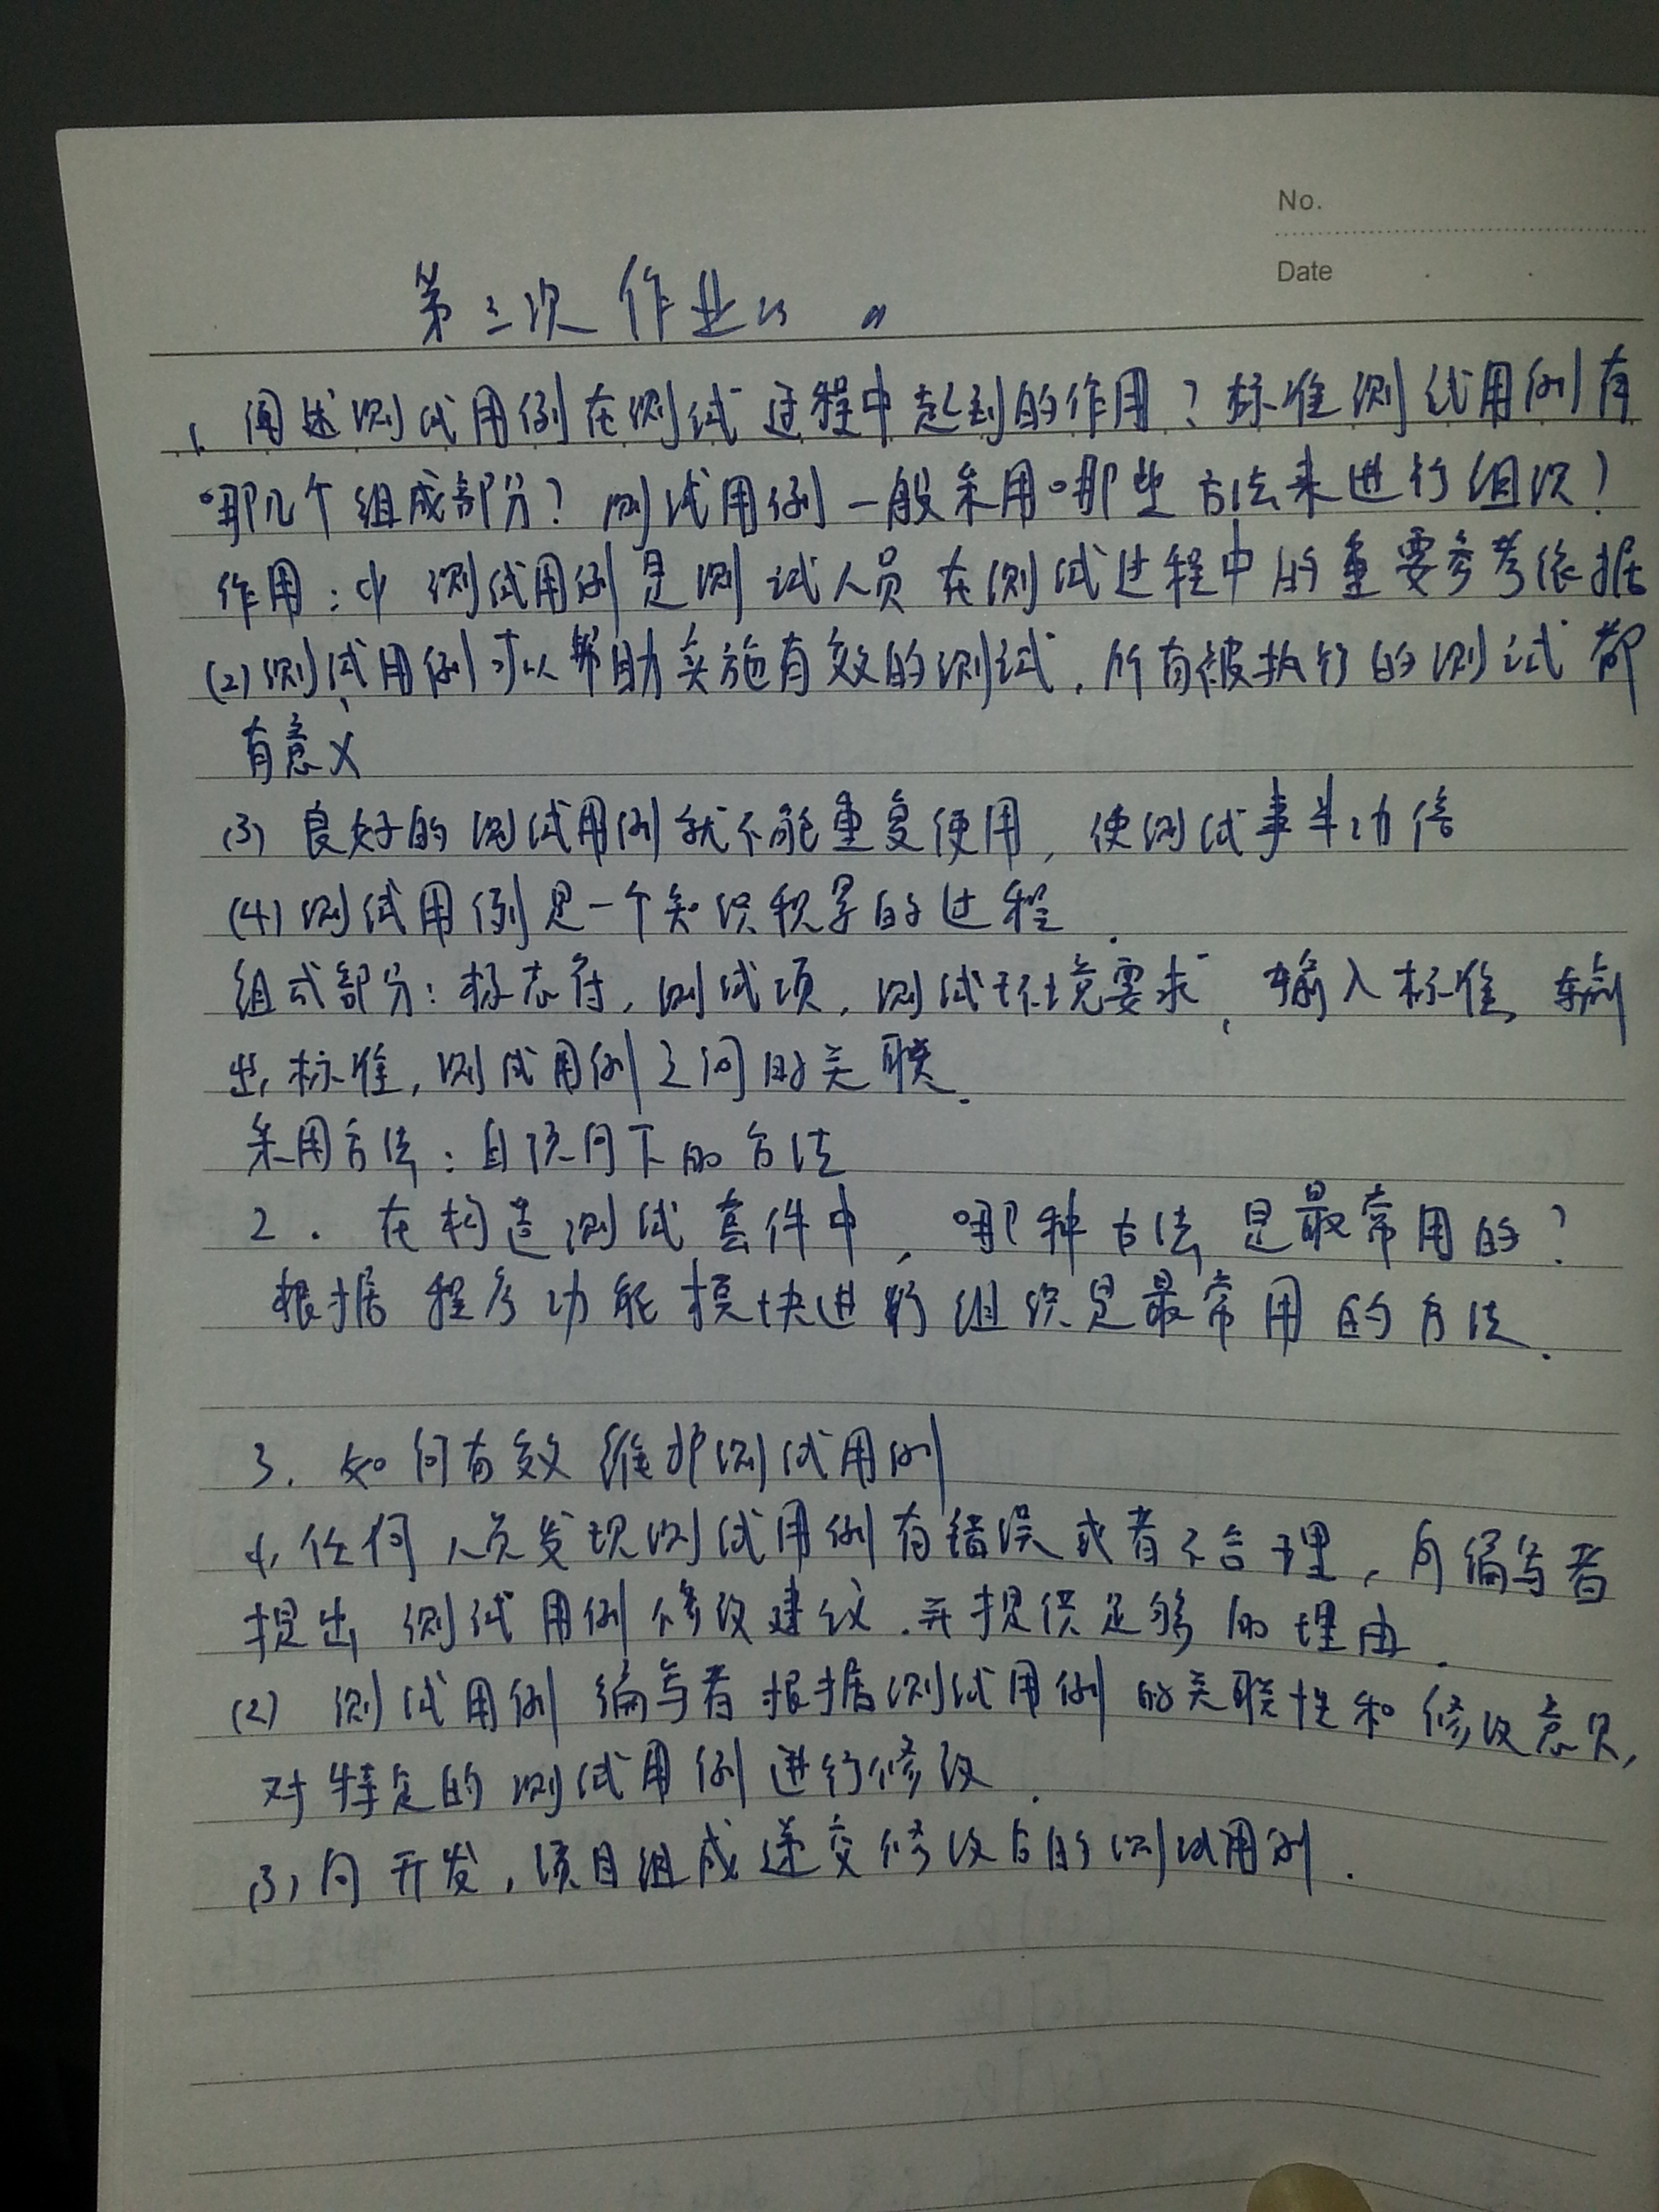 No.
Date
第三次作业
1. 阐述测试用例在测试过程中起到的作用？标准测试用例有
哪几个组成部分？测试用例一般采用哪些方法来进行组织？
作用：(1) 测试用例是测试人员在测试过程中的重要参考依据
(2) 测试用例可以帮助实施有效的测试，所有被执行的测试都
有意义
(3) 良好的测试用例就不能重复使用，使测试事半功倍
(4) 测试用例是一个知识积累的过程.
组成部分：标志符，测试项，测试环境要求，输入标准，输
出标准，测试用例之间的关联.
采用方法：自顶向下的方法
2. 在构造测试套件中，哪种方法是最常用的？
根据程序功能模块进行组织是最常用的方法.
3. 如何有效维护测试用例
(1) 任何人员发现测试用例有错误或者不合理，向编写者
提出测试用例修改建议.并提供足够的理由.
(2) 测试用例编写者根据测试用例的关联性和修改意见，
对特定的测试用例进行修改.
(3) 向开发，项目组成递交修改后的测试用例.